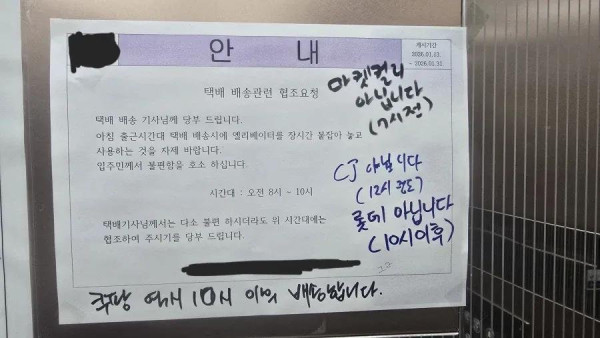 안 내
게시기간
2026.01.02.
~ 2026.01.31.
택배 배송관련 협조요청
택배 배송 기사님께 당부 드립니다.
아침 출근시간대 택배 배송시에 엘리베이터를 장시간 붙잡아 놓고
사용하는 것을 자제 바랍니다.
입주민께서 불편함을 호소 하십니다.
시간대 : 오전 8시 ~ 10시
택배기사님께서는 다소 불편 하시더라도 위 시간대에는
협조하여 주시기를 당부 드립니다.
마켓컬리
아닙니다
(7시전)
CJ 아닙니다
(12시 정도)
롯데 아닙니다
(10시이후)
쿠팡 역시 10시 이후 배송합니다.